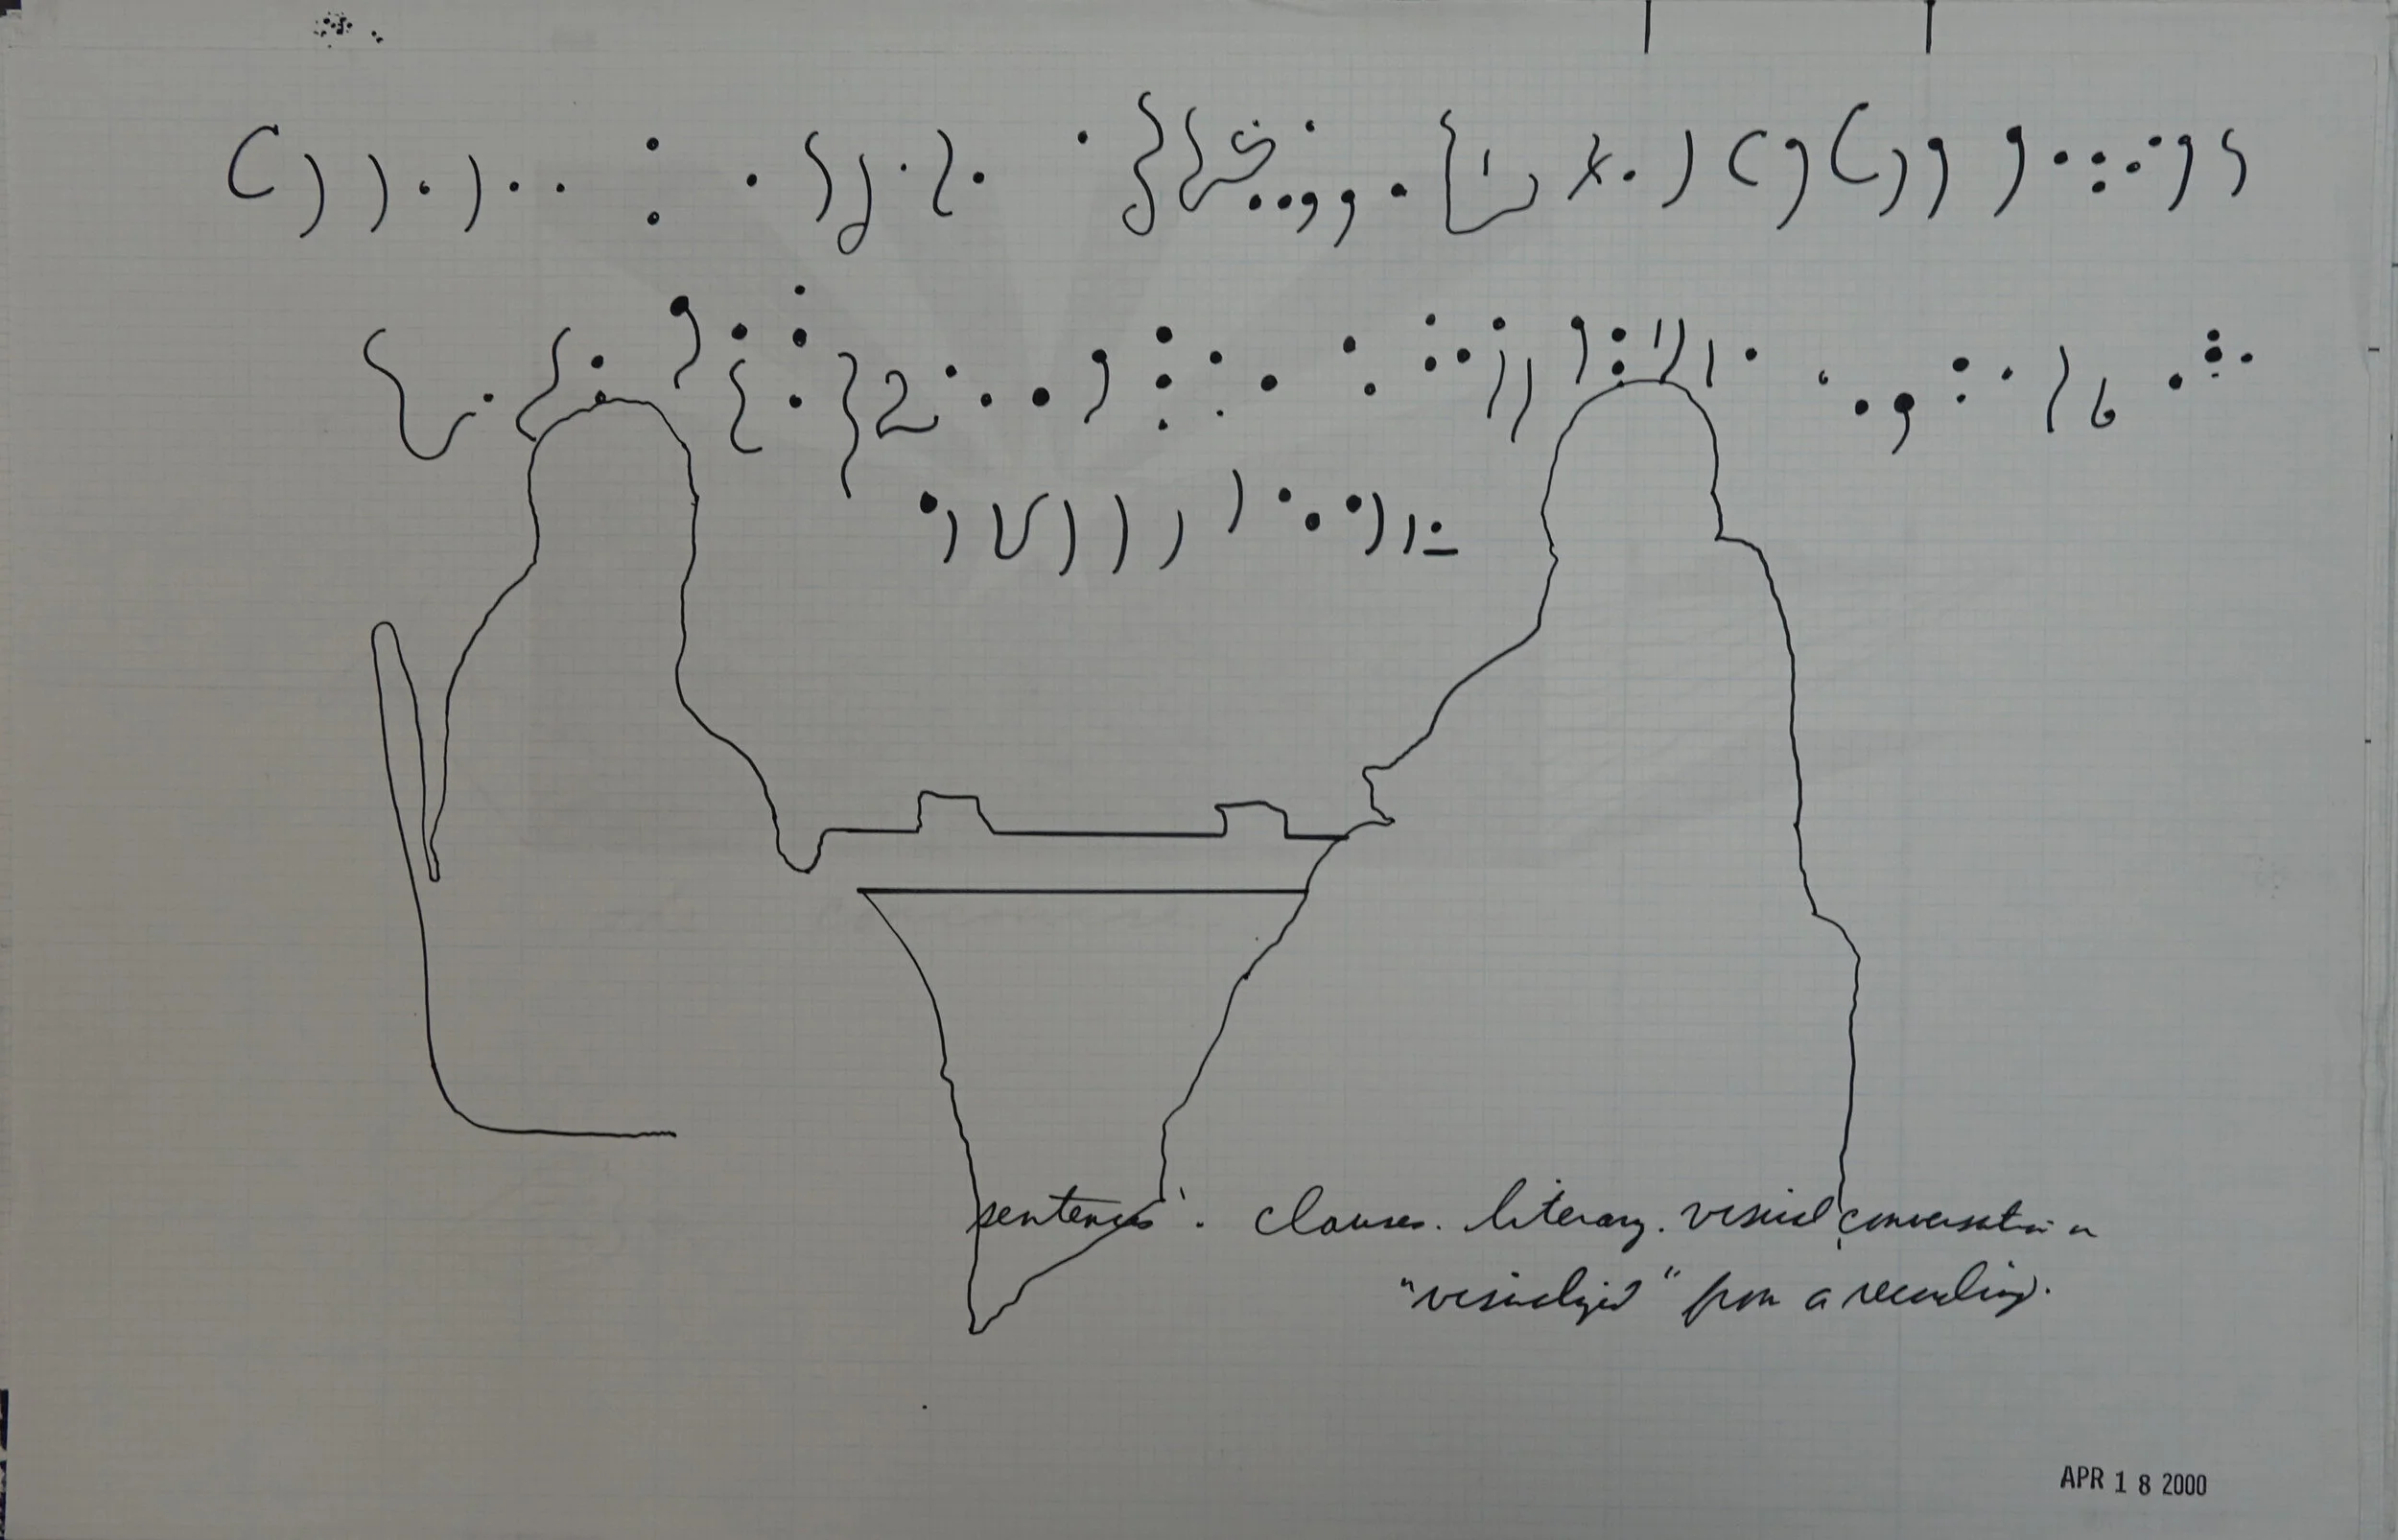 sentences. clauses. literary. visual conversation
"visualized" from a recording.
APR 18 2000